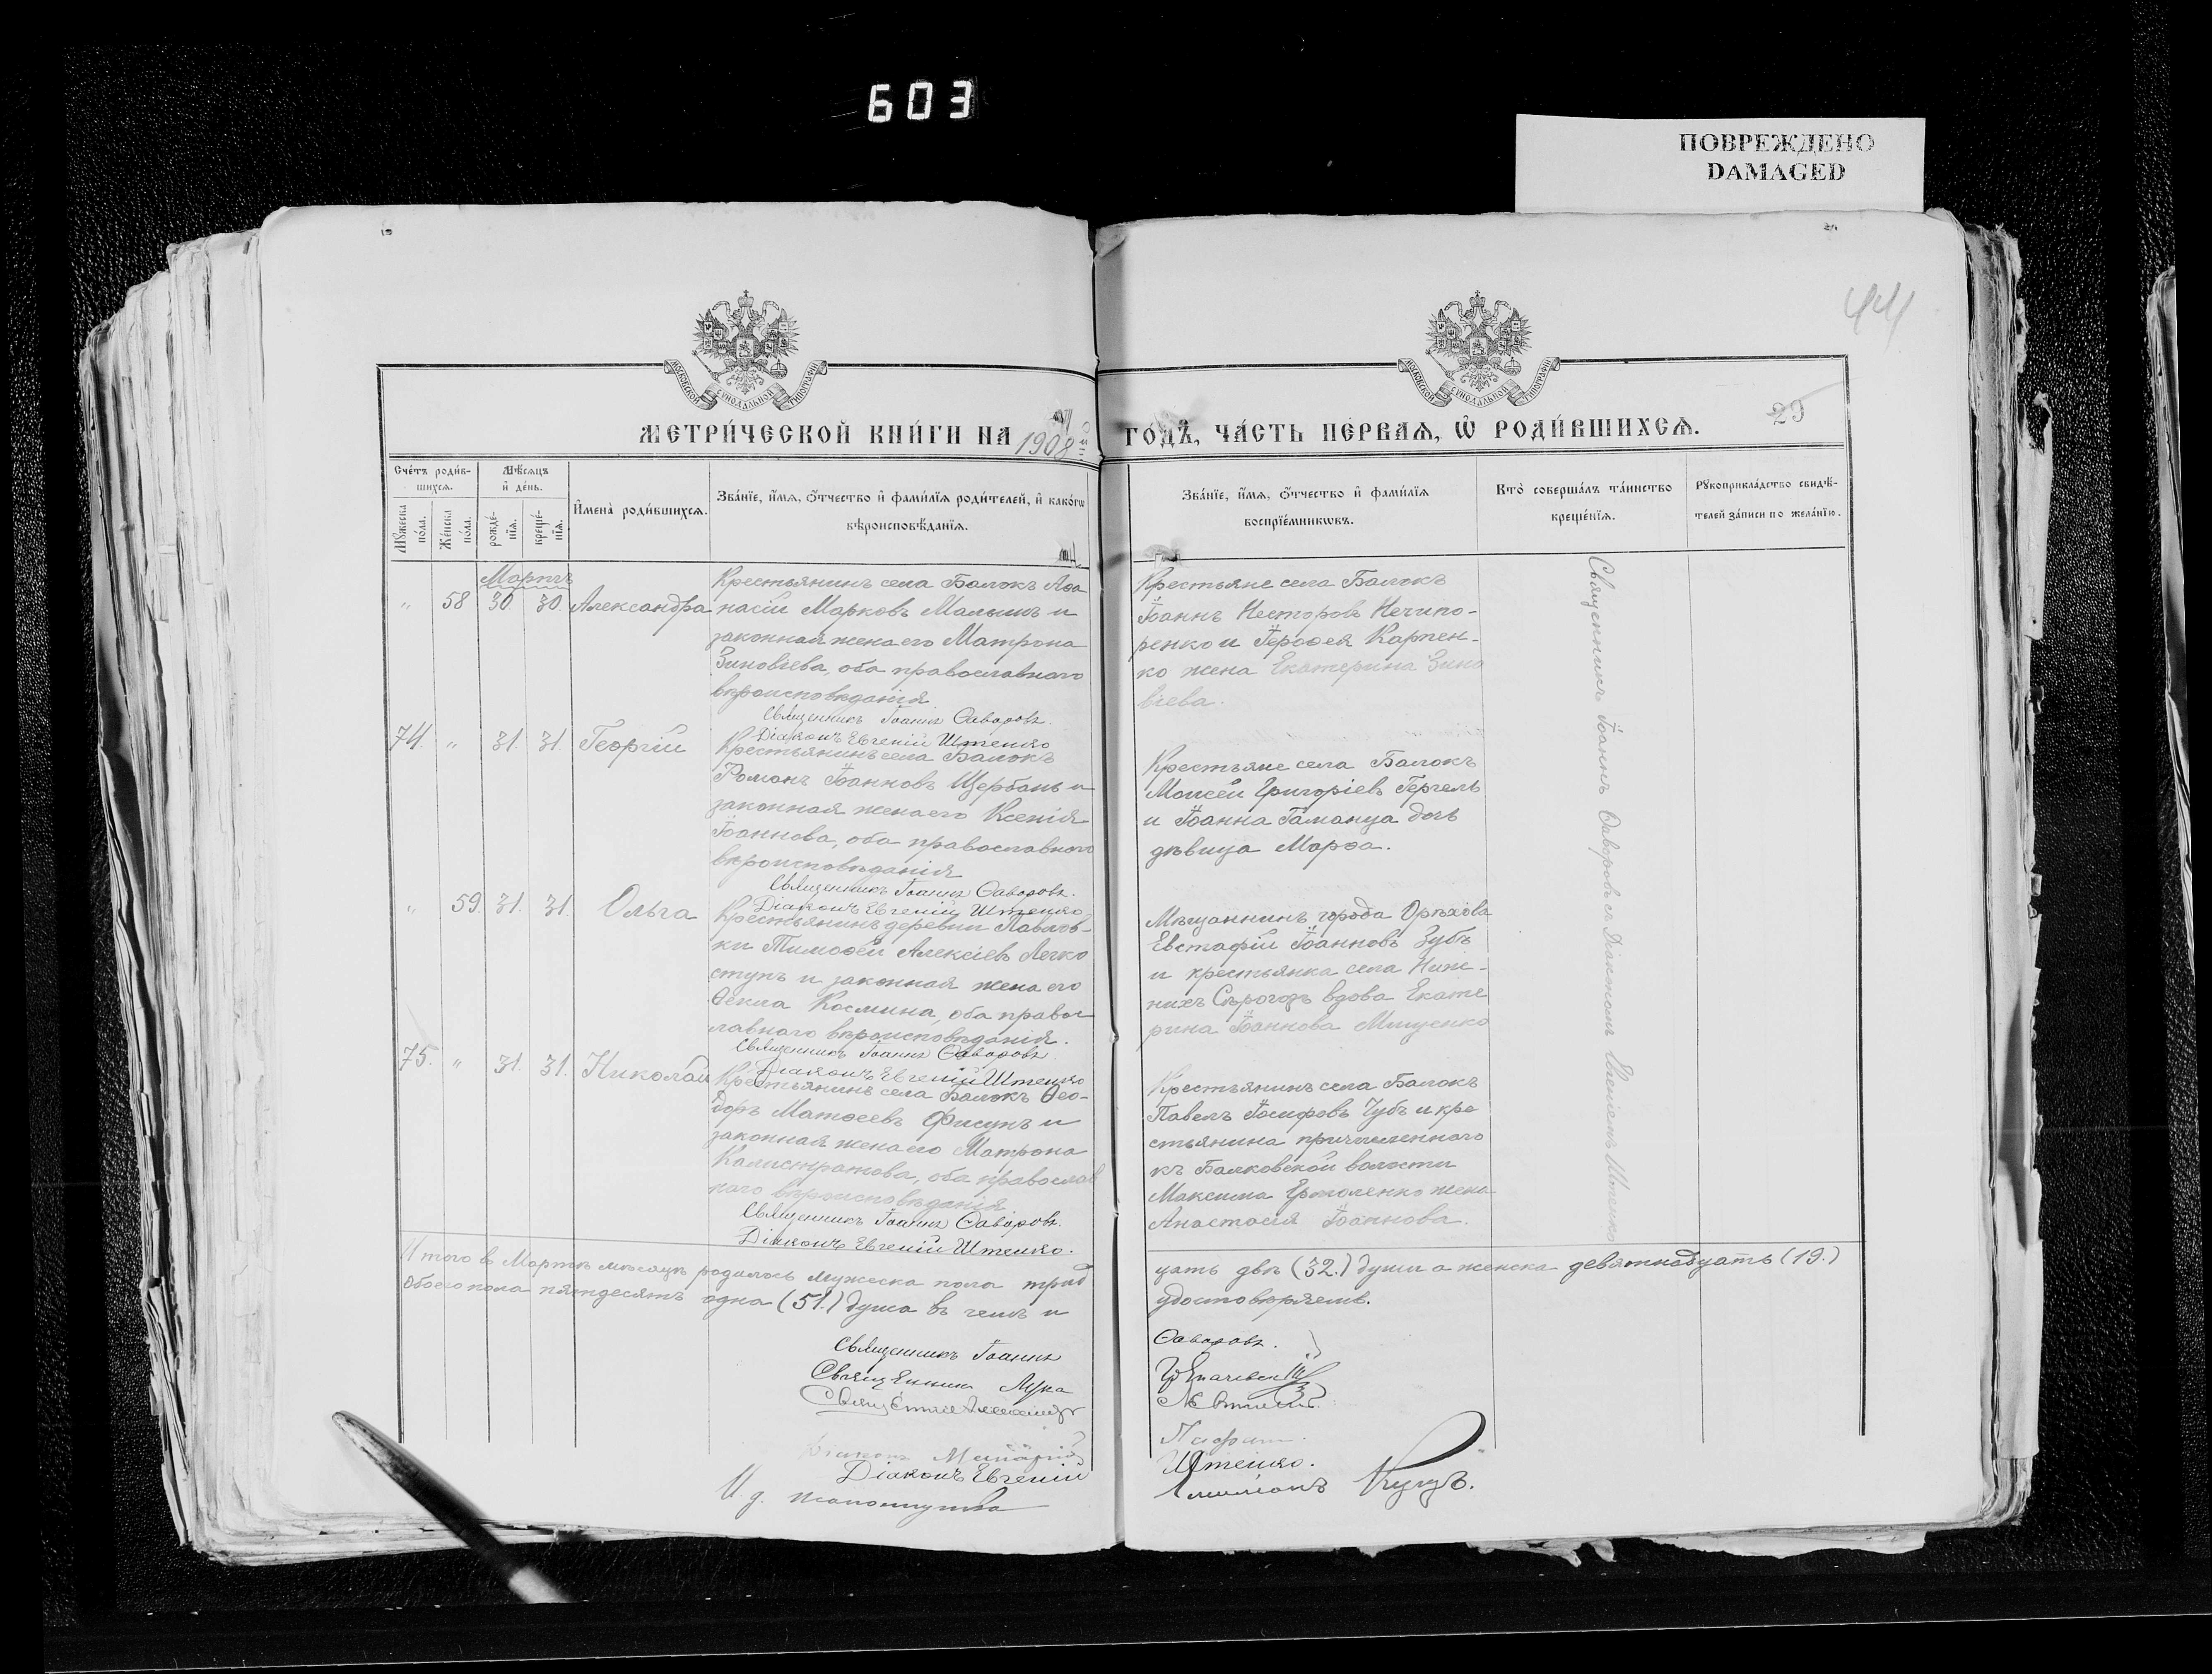 603
ПОВРЕЖДЕНО
DAMAGED
44
МОСКОВСКОЙ СѴНОДАЛЬНОЙ ТИПОГРАФІИ
МОСКОВСКОЙ СѴНОДАЛЬНОЙ ТИПОГРАФІИ
29
МЕТРИ́ЧЕСКОЙ КНИ́ГИ НА 1908 ГОДЪ, ЧА́СТЬ ПЕ́РВАѦ, Ѡ҆ РОДИ́ВШИХСѦ.
Сче́тъ роди́в-
шихсѧ.
Мꙋ́жеска по́ла.
Же́нска по́ла.
Мѣ́сѧцъ
и҆ де́нь.
рожде́-
нїѧ.
креще́-
нїѧ.
И҆мена̀ роди́вшихсѧ.
Зва́нїе, и҆́мѧ, ѻ҆́тчество и҆ фами́лїѧ роди́телей, и҆ како́гѡ
вѣроисповѣ́данїѧ.
Зва́нїе, и҆́мѧ, ѻ҆́тчество и҆ фами́лїѧ
воспрїе́мникѡвъ.
Кто̀ соверша́лъ та́инство
креще́нїѧ.
Рꙋкоприкла́дство свидѣ́-
телей за́писи по жела́нїю.
Мартъ
" 58 30. 30. Александра
Крестьянинъ села Балокъ Аѳа
насій Марковъ Малышъ и
законная жена его Матрона
Зиновіева, оба православнаго
вѣроисповѣданія
Священникъ Іоаннъ Ѳаворовъ.
Діаконъ Евгеній Штенко
Крестьяне села Балокъ
Іоаннъ Несторовъ Нечипо-
ренко и Іероѳея Карпен-
ко жена Екатерина Зино
віева.
Священникъ Іоаннъ Ѳаворовъ съ Діакономъ Евгеніемъ Штенко
74. " 31. 31. Георгій
Крестьянинъ села Балокъ
Романъ Іоанновъ Щербань и
законная жена его Ксенія
Іоаннова, оба православнаго
вѣроисповѣданія
Священникъ Іоаннъ Ѳаворовъ.
Діаконъ Евгеній Штенко
Крестьяне села Балокъ
Моисей Григоріевъ Гергель
и Іоанна Гаманца дочь
дѣвица Марѳа.
" 59. 31. 31. Ольга
Крестьянинъ деревни Павлов-
ки Тимоѳей Алексіевъ Легко
ступъ и законная жена его
Ѳекла Космина, оба правос
лавнаго вѣроисповѣданія.
Священникъ Іоаннъ Ѳаворовъ.
Діаконъ Евгеній Штенко
Мѣщанинъ города Орѣхова
Евстафій Іоанновъ Зубъ
и крестьянка села Ниж-
нихъ Сѣрогозъ вдова Екате
рина Іоаннова Мищенко
75. " 31. 31. Николай
Крестьянинъ села Балокъ Ѳео-
доръ Матѳеевъ Фисунъ и
законная жена его Матрона
Калистратова, оба православ
наго вѣроисповѣданія
Священникъ Іоаннъ Ѳаворовъ.
Діаконъ Евгеній Штенко.
Крестьянинъ села Балокъ
Павелъ Іосифовъ Чубъ и кре
стьянина причисленнаго
къ Балковской волости
Максима Ермоленко жена
Анастасія Іоаннова.
Итого въ Мартѣ мѣсяцѣ родилось мужеска пола трид цать двѣ (32.) души а женска девятнадцать (19.)
Обоего пола пятдесятъ одна (51.) душа въ чемъ и удостовѣряемъ.
Священникъ Іоаннъ Ѳаворовъ.
Священникъ Лука
Священникъ Александръ
Діаконъ
Діаконъ Евгеній Штенко.
И. д. псаломщика Кундъ.